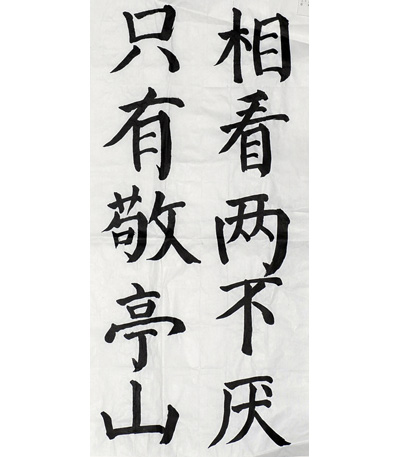 相看两不厌
只有敬亭山